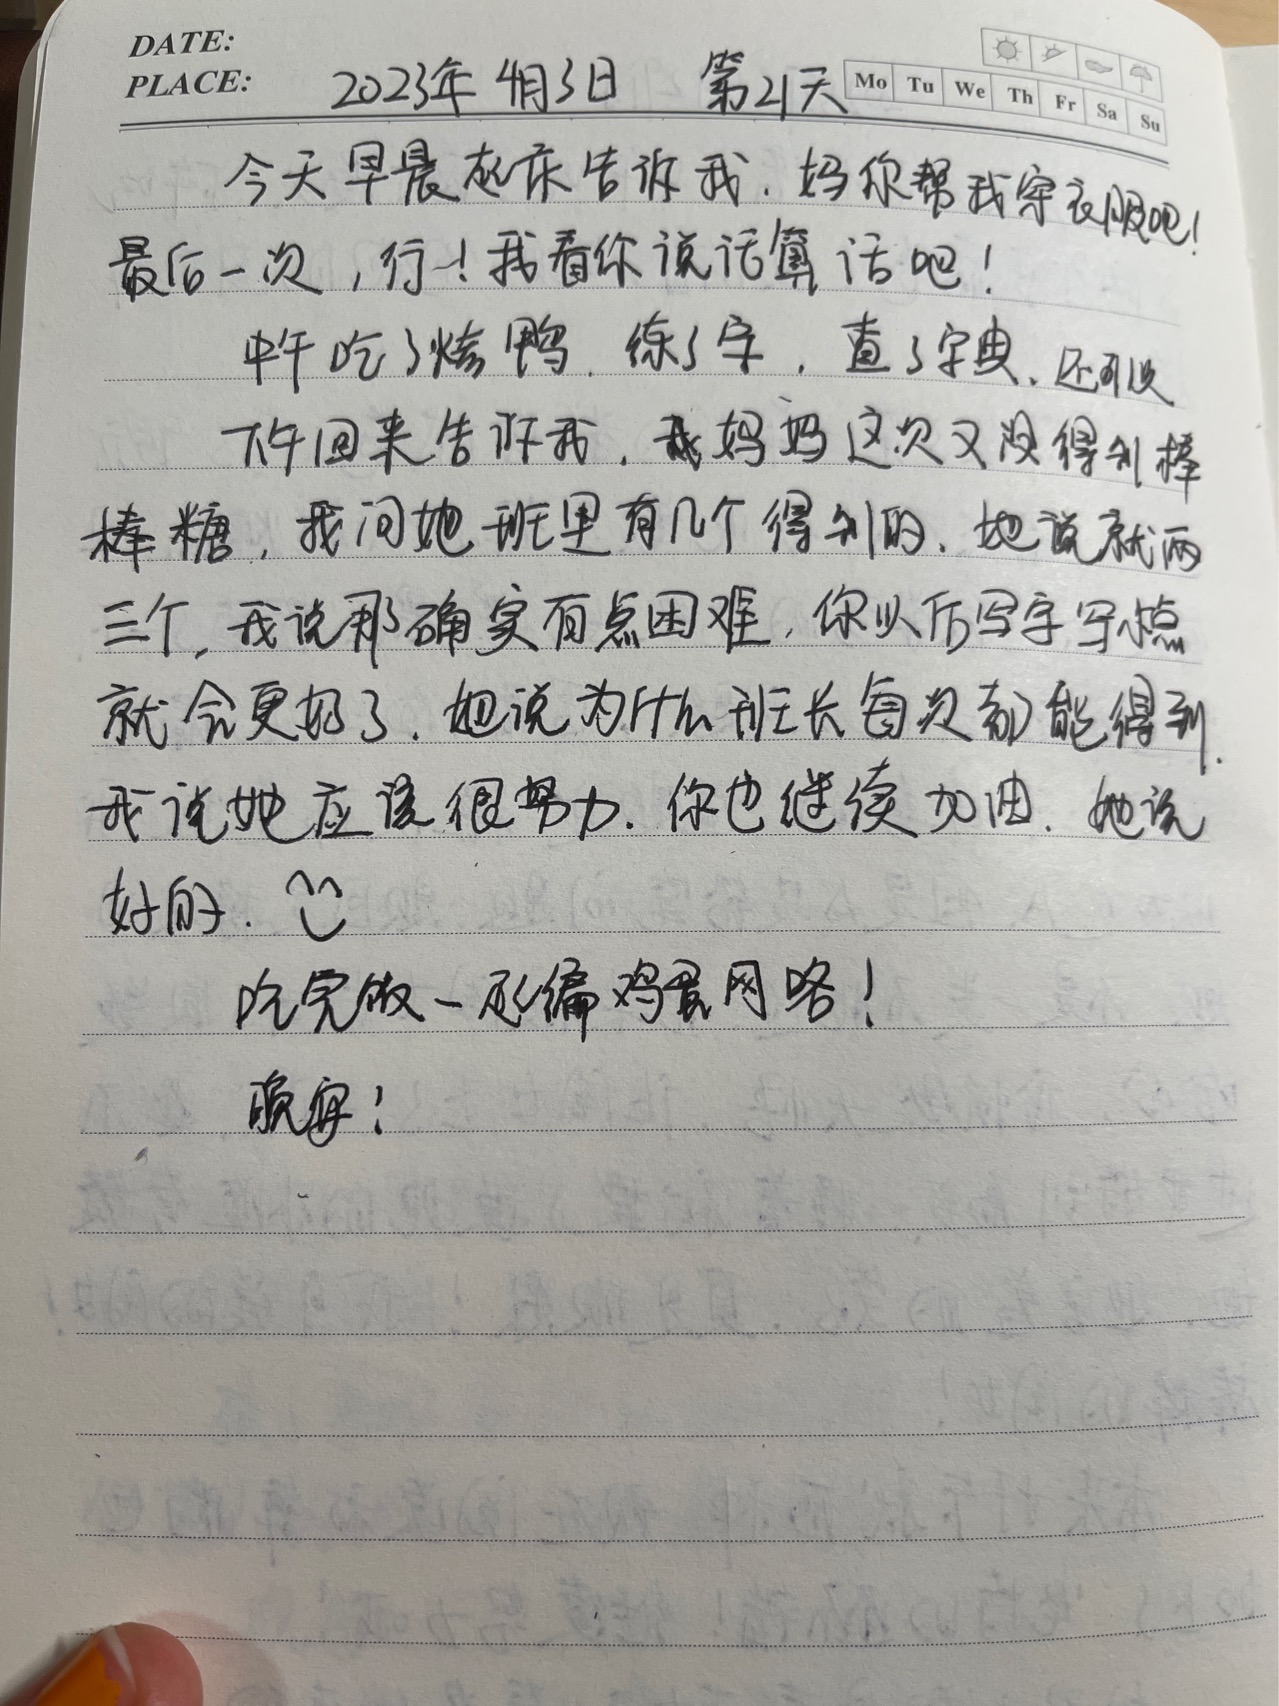 DATE:
PLACE: 2023年4月3日 第21天 Mo Tu We Th Fr Sa Su
今天早晨起床告诉我，妈你帮我穿衣服吧！
最后一次，行！我看你说话算话吧！
中午吃了烤鸭，练了字，查了字典，还可以
下午回来告诉我，我妈妈这次又没得到棒
棒糖，我问她班里有几个得到的，她说就两
三个，我说那确实有点困难，你以后写字写小点
就会更好了，她说为什么班长每次都能得到，
我说她应该很努力，你也继续加油，她说
好的.
吃完饭一起编鸡蛋网咯！
晚安！